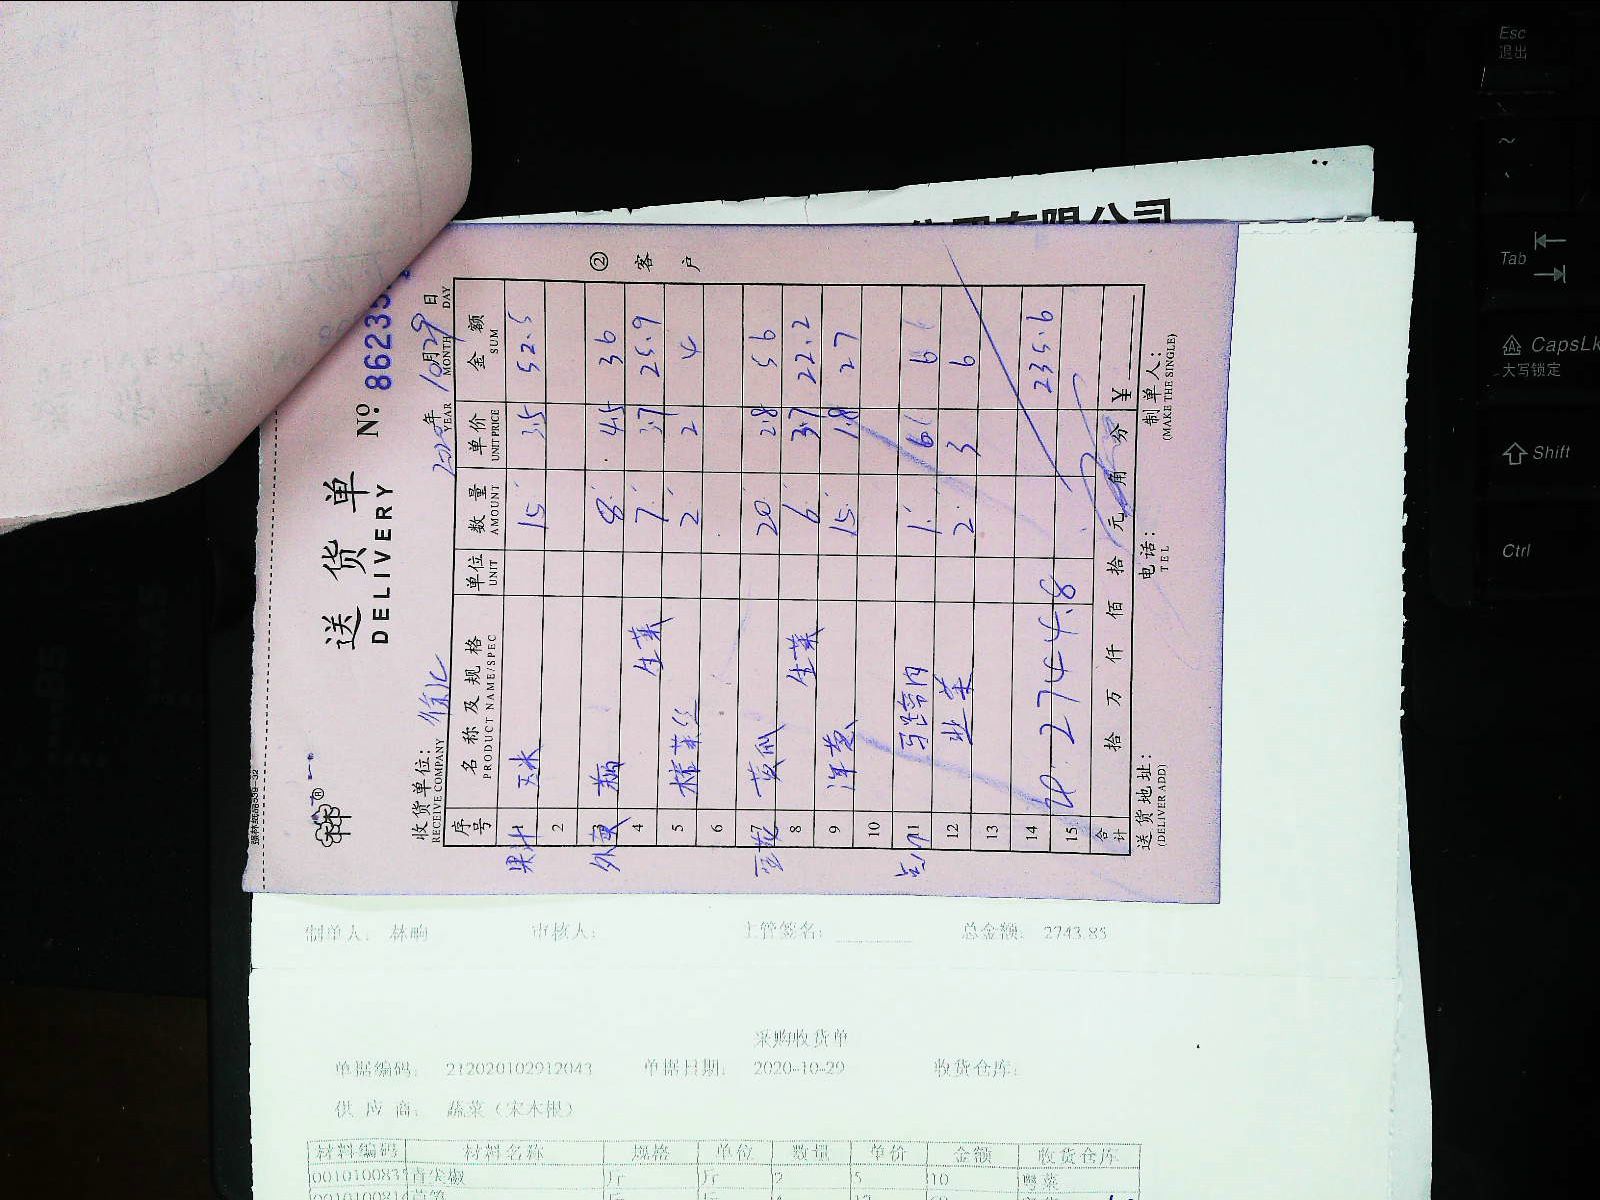 送货单
DELIVERY
№ 86235
收货单位: 徐汇 2020年10月29日
RECEIVE COMPANY YEAR MONTH DAY
序号 名称及规格 单位 数量 单价 金额
PRODUCT NAME/SPEC UNIT AMOUNT UNIT PRICE SUM
果汁 1 15 3.5 52.5
2
3 8 4.5 36
4 生菜 7 3.7 25.9
5 榨菜丝 2 2 4
6
7 黄瓜 20 2.8 56
8 生菜 6 3.7 22.2
9 洋葱 15 1.8 27
10
11 马蹄肉 1 6 6
12 韭菜 2 3 6
13
14 235.6
15 2744.8
合计 拾 万 仟 佰 拾 元 角 分 ¥
送货地址: 电话: 制单人:
(DELIVER ADD) TEL (MAKE THE SINGLE)
② 客户
有限公司
制单人: 林响 审核人: 主管签名: 总金额: 2743.85
采购收货单
单据编码: 212020102912043 单据日期: 2020-10-29 收货仓库:
供应商: 蔬菜(宋木银)
材料编码 材料名称 规格 单位 数量 单价 金额 收货仓库
001010083 青尖椒 斤 斤 2 5 10 粤菜
Esc
退出
~
Tab
CapsLk
大写锁定
Shift
Ctrl